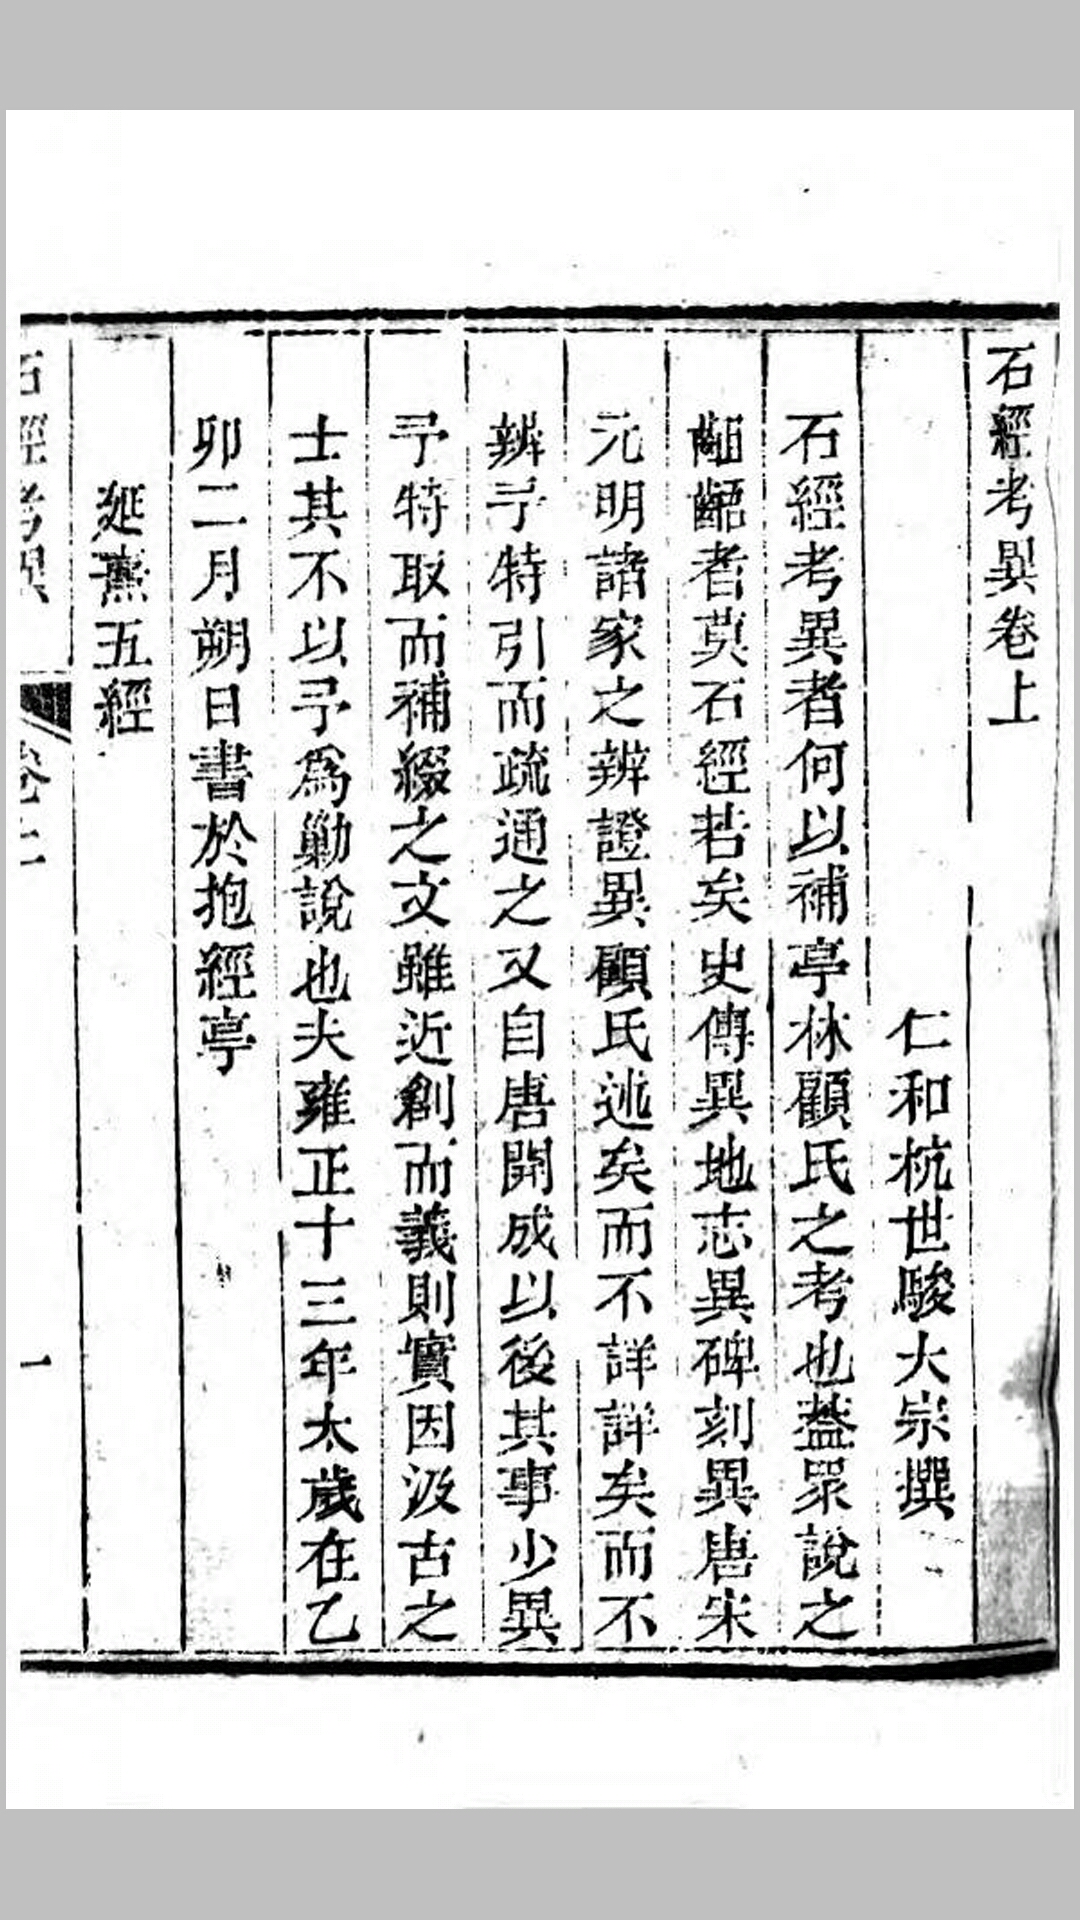 石經考異卷上
仁和杭世駿大宗撰
石經考異者何以補亭林顧氏之考也葢眾說之
齟齬者莫石經若矣史傳異地志異碑刻異唐宋
元明諸家之辨證異顧氏述矣而不詳詳矣而不
辨予特引而疏通之又自唐開成以後其事少異
予特取而補綴之文雖近創而義則實因汲古之
士其不以予爲勦說也夫雍正十三年太歲在乙
卯二月朔日書於抱經亭
延熹五經
石經考異
卷上
一